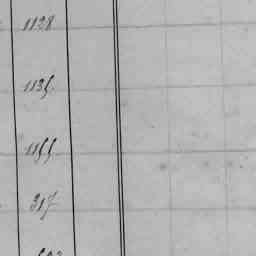 1128
1135
1155
317